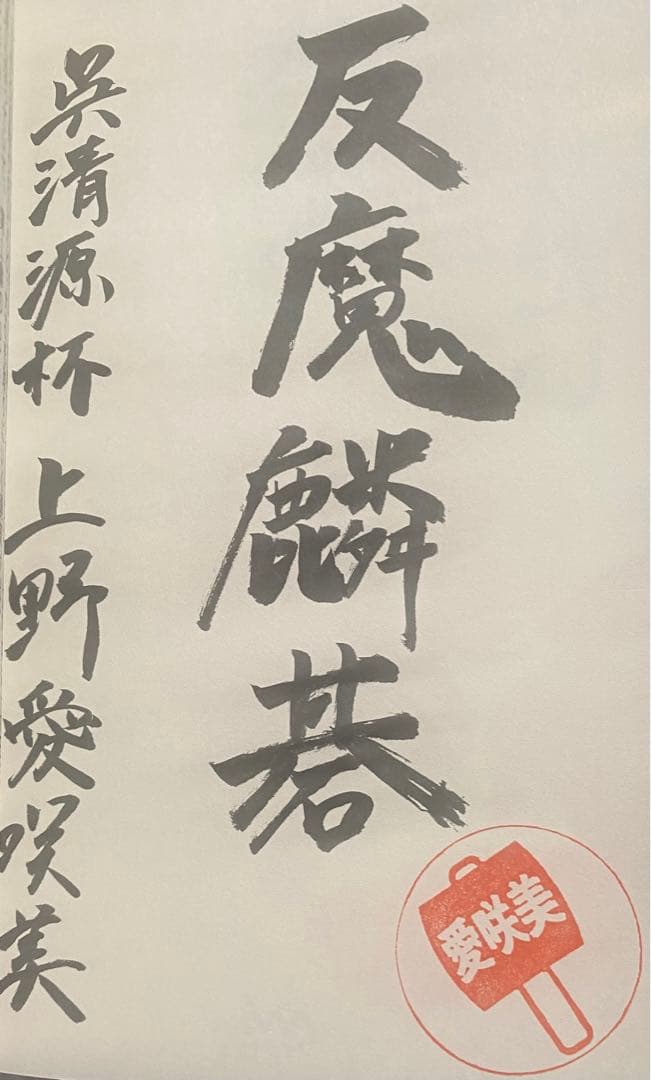 反魔麟碁
呉清源杯 上野愛咲美
愛咲美